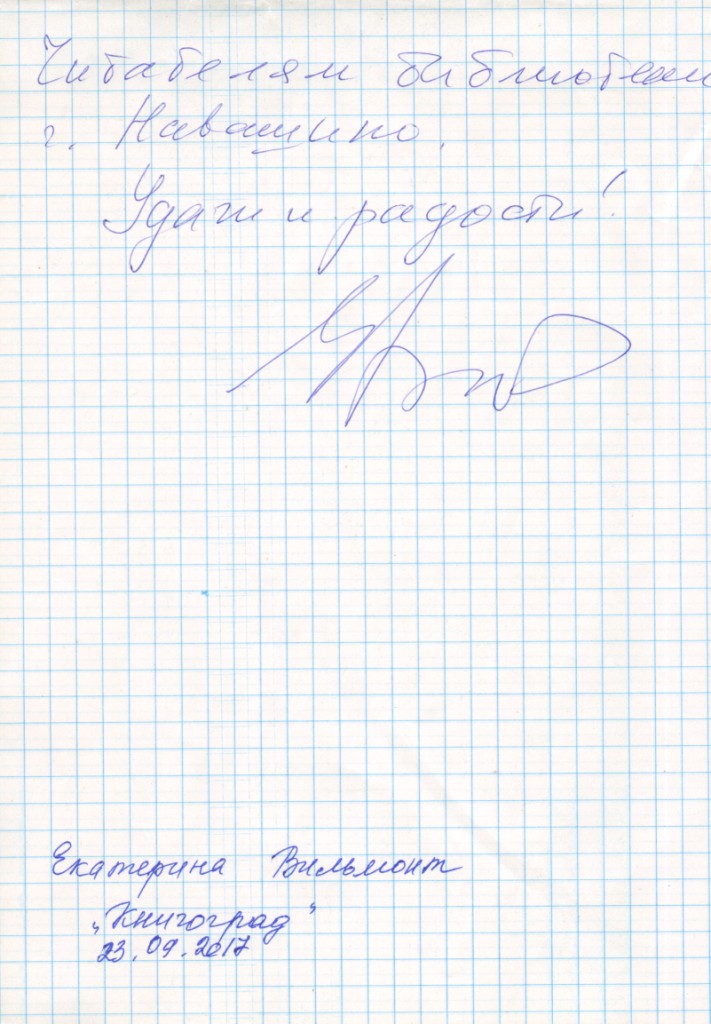 Читателям библиотеки
г. Навашино.
Удачи и радости!
Екатерина Вильмонт
„Книгоград"
23.09.2017